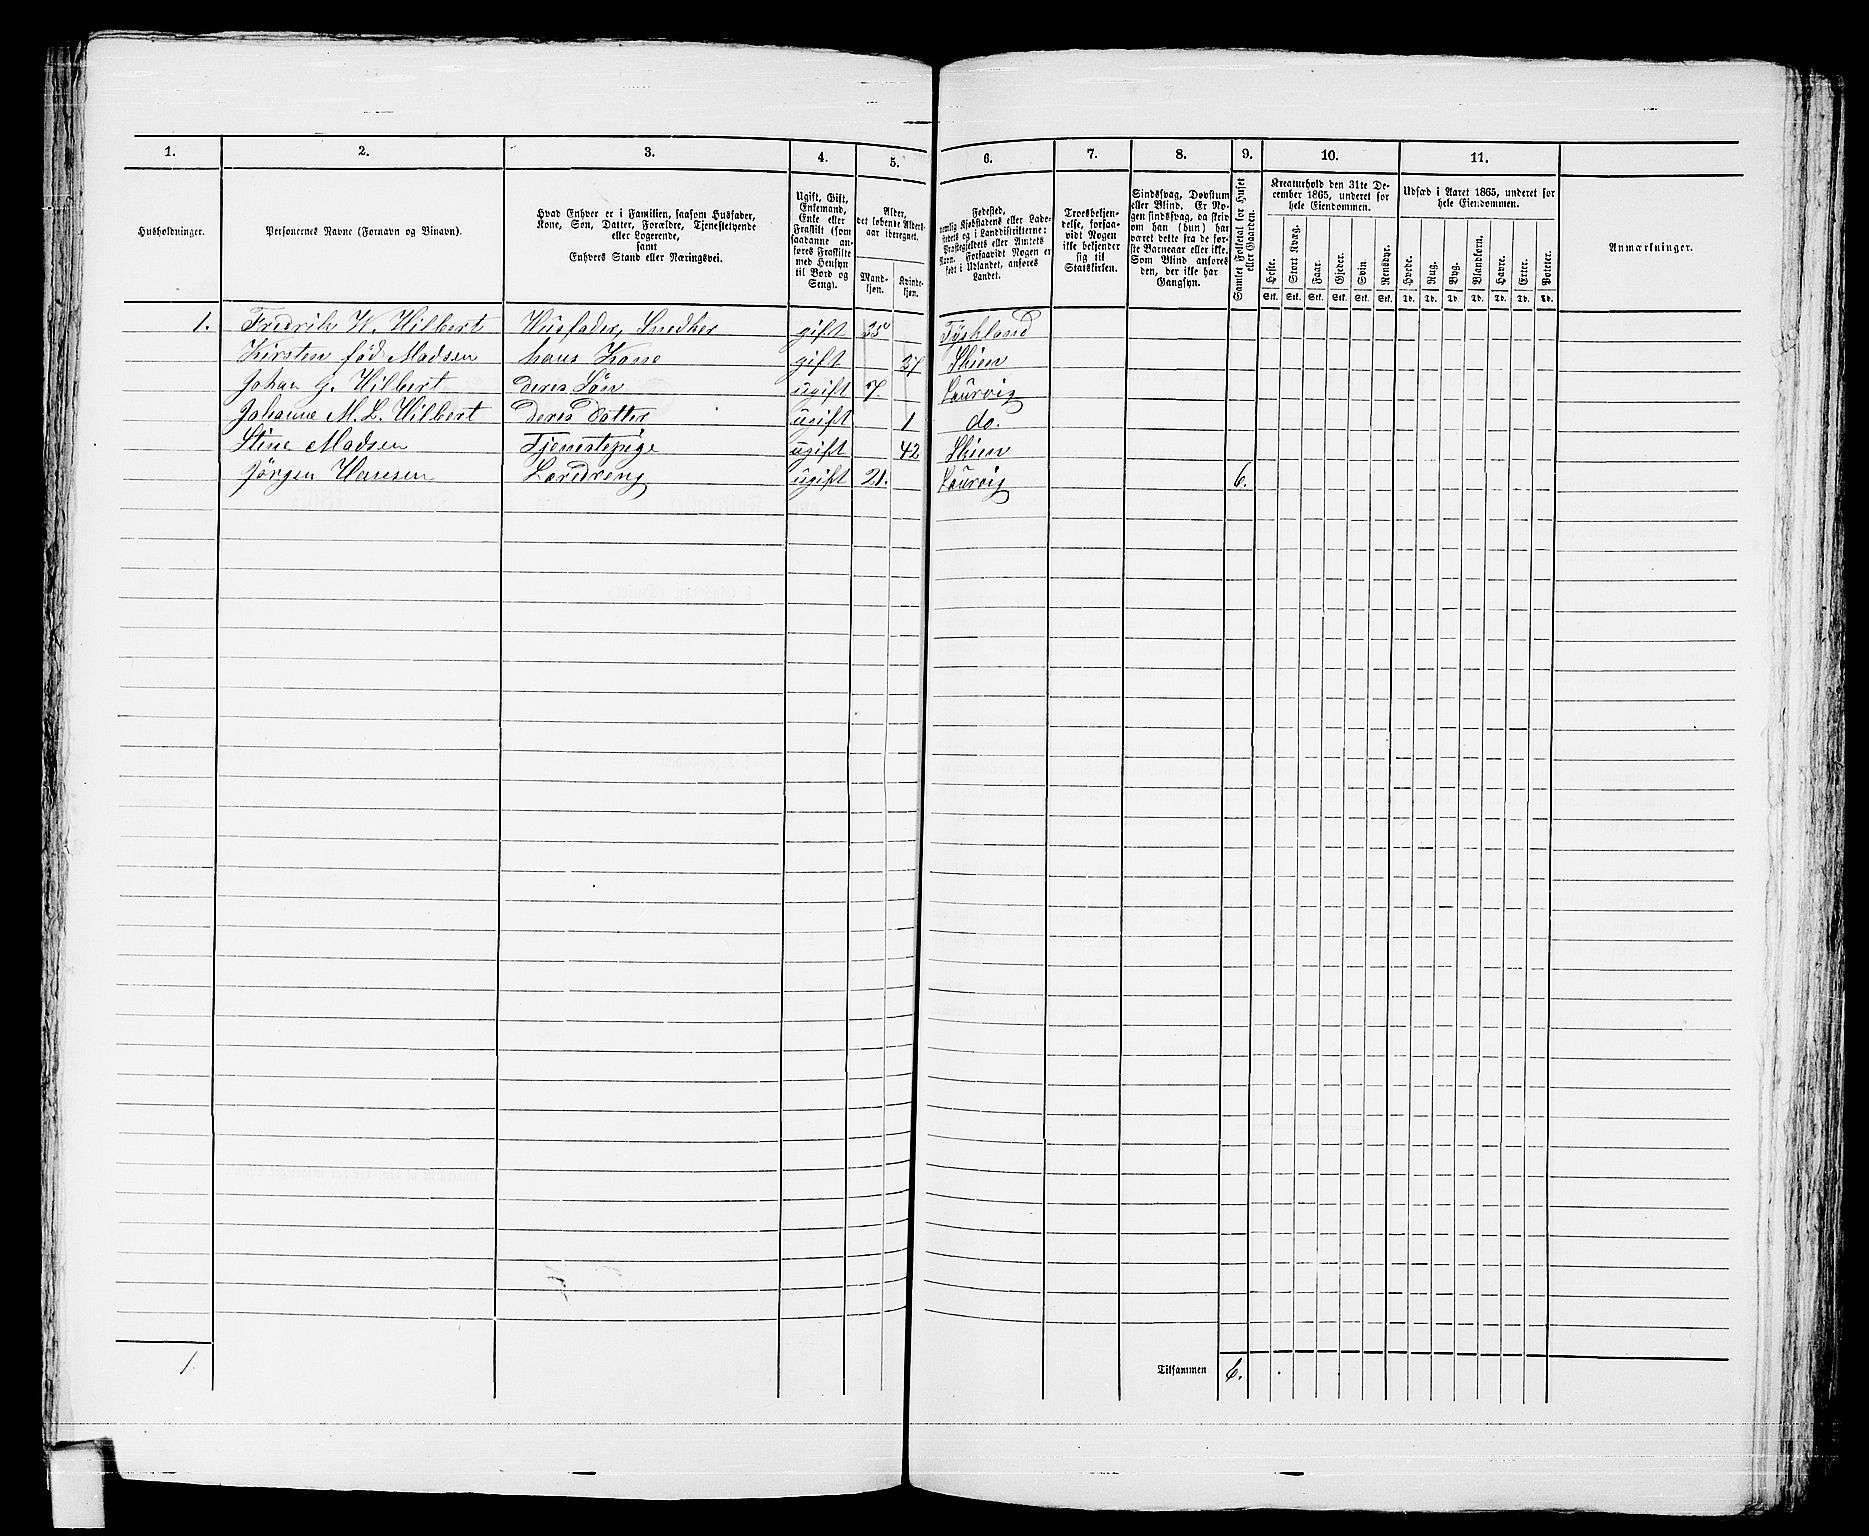 1. 2. 3. 4. 5. 6. 7. 8. 9. 10. 11.
Husholdninger.
Personernes Navne (Fornavn og Binavn).
Hvad Enhver er i Familien, saasom Husfader,
Kone, Søn, Datter, Forældre, Tjenestetyende
eller Logerende,
samt
Enhvers Stand eller Næringsvei.
Ugift, Gift,
Enkemand,
Enke eller
Fraskilt (som
saadanne an-
føres Fraskilte
med Hensyn
til Bord og
Seng).
Alder,
det løbende Alders-
aar iberegnet.
Mand-
kjøn.
Kvinde-
kjøn.
Fødested,
nemlig Kjøbstadens eller Lade-
stedets og i Landdistrikterne:
Præstegjeldets eller Amtets
Navn. Forsaavidt Nogen er
født i Udlandet, anføres
Landet.
Troesbekjen-
delse, forsaa-
vidt Nogen
ikke bekjender
sig til
Statskirken.
Sindssvag, Døvstum
eller Blind. Er No-
gen sindssvag, da skriv
om han (hun) har
været dette fra de før-
ste Barneaar eller ikke.
Som Blind anføres
den, der ikke har
Gangsyn.
Samlet Folketal for Huset
eller Gaarden.
Kreaturhold den 31te De-
cember 1865, underet for
hele Eiendommen.
Heste. Stort Kvæg. Faar. Gjeder. Svin. Rensdyr.
Stk. Stk. Stk. Stk. Stk. Stk.
Udsæd i Aaret 1865, underet for
hele Eiendommen.
Hvede. Rug. Byg. Blandkorn. Havre. Erter. Poteter.
Td. Td. Td. Td. Td. Td. Td.
Anmærkninger.
1. Fredrik W. Hilbert Husfader, Snedker gift 35 Tyskland
Kirsten fød Madsen hans Kone gift 27 Skien
Johan G. Hilbert Deres Søn ugift 7. Laurvig
Johanne M. L. Hilbert Deres Datter ugift 1 do.
Stine Madsen Tjenestepige ugift 42 Skien
Jørgen Hansen Læredreng ugift 21. Laurvig 6.
1. Tilsammen 6.